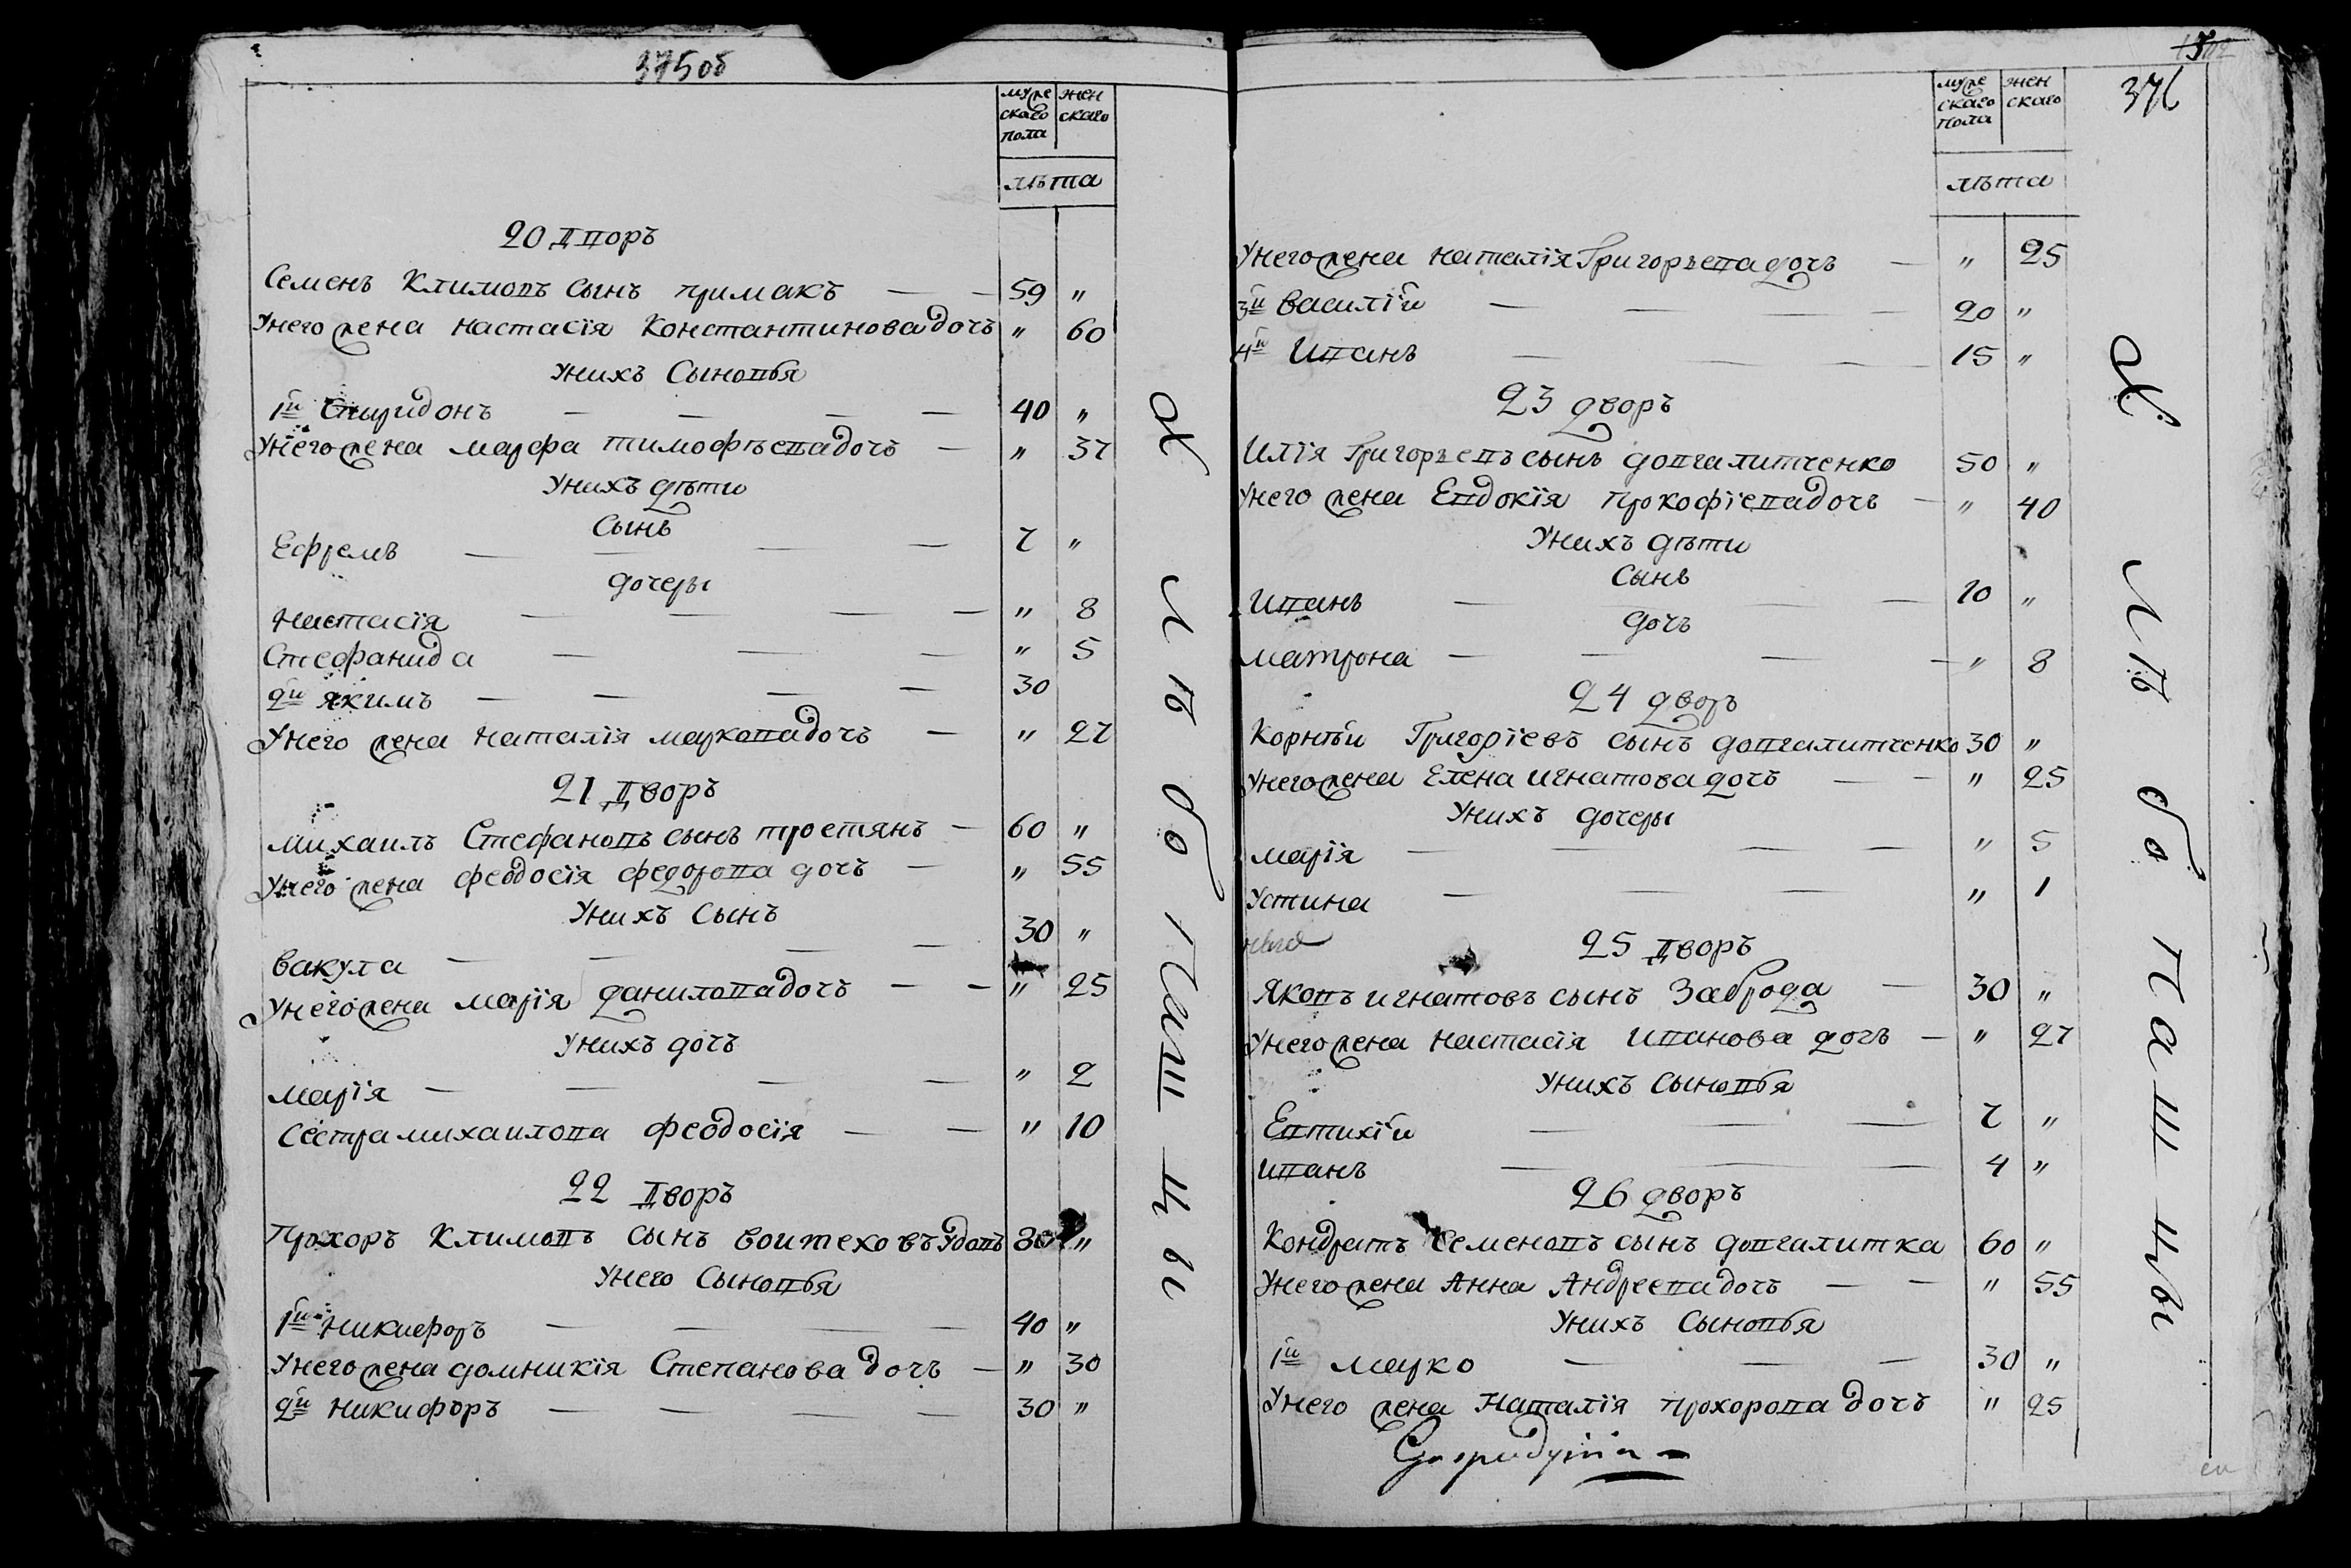 375об
муже
скаго
пола
жен
скаго
лѣта
20 Дворъ
Семенъ Климовъ сынъ примакъ — — 59 "
Унего жена настасія Константинова дочь " 60
Унихъ Сыновья
1й Спиридонъ — — — — 40 "
Унего жена марфа тимофѣева дочь — " 37
Унихъ дѣти
Сынъ
Ефремъ — — — — 7 "
дочеры
Настасія — — — — " 8
Стефанида — — — " 5
2й якимъ — — — — 30
Унего жена наталія маркова дочь — " 27
21 Дворъ
михаилъ Стефановъ сынъ тростянъ — 60 "
Унего жена феодосія федорова дочь — " 55
Унихъ Сынъ
вакула — — — — 30 "
Унего жена марія данилова дочь — — " 25
Унихъ дочъ
марія — — — — " 2
Сестра михаилова феодосія — — " 10
22 Дворъ
Прохоръ Климовъ сынъ воитеховъ вдовъ 80 "
Унего Сыновья
1й никифоръ — — — — 40 "
Унего жена домникія Степанова дочъ — " 30
2й никифоръ — — — — 30 "
д л ѣ б о п а ш ц ы
1502
376
муже
скаго
пола
жен
скаго
лѣта
Унего жена наталія Григорьева дочъ — " 25
3й василій — — — 20 "
4й Иванъ — — — 15 "
23 дворъ
Илія Григорьевъ сынъ довгалитченко 50 "
Унего жена Евдокія прокофіева дочъ — " 40
Унихъ дѣти
Сынъ
Иванъ — — — 10 "
дочъ
матрона — — — — " 8
24 дворъ
Корнѣи Григоріевъ сынъ довгалитченко 30 "
Унего жена Елена игнатова дочъ — — " 25
Унихъ дочеры
марія — — — — " 5
Устина — — — " 1
25 дворъ
Яковъ игнатовъ сынъ Заброда — 30 "
Унего жена настасія иванова дочъ — " 27
Унихъ Сыновья
Евтихій — — — 7 "
иванъ — — — 4 "
26 дворъ
Кондратъ Семеновъ сынъ довгалитка 60 "
Унего жена Анна Андреева дочъ — — " 55
Унихъ Сыновья
1й марко — — — 30 "
Унего жена Наталія прохорова дочъ " 25
х л ѣ б о п а ш ц ы